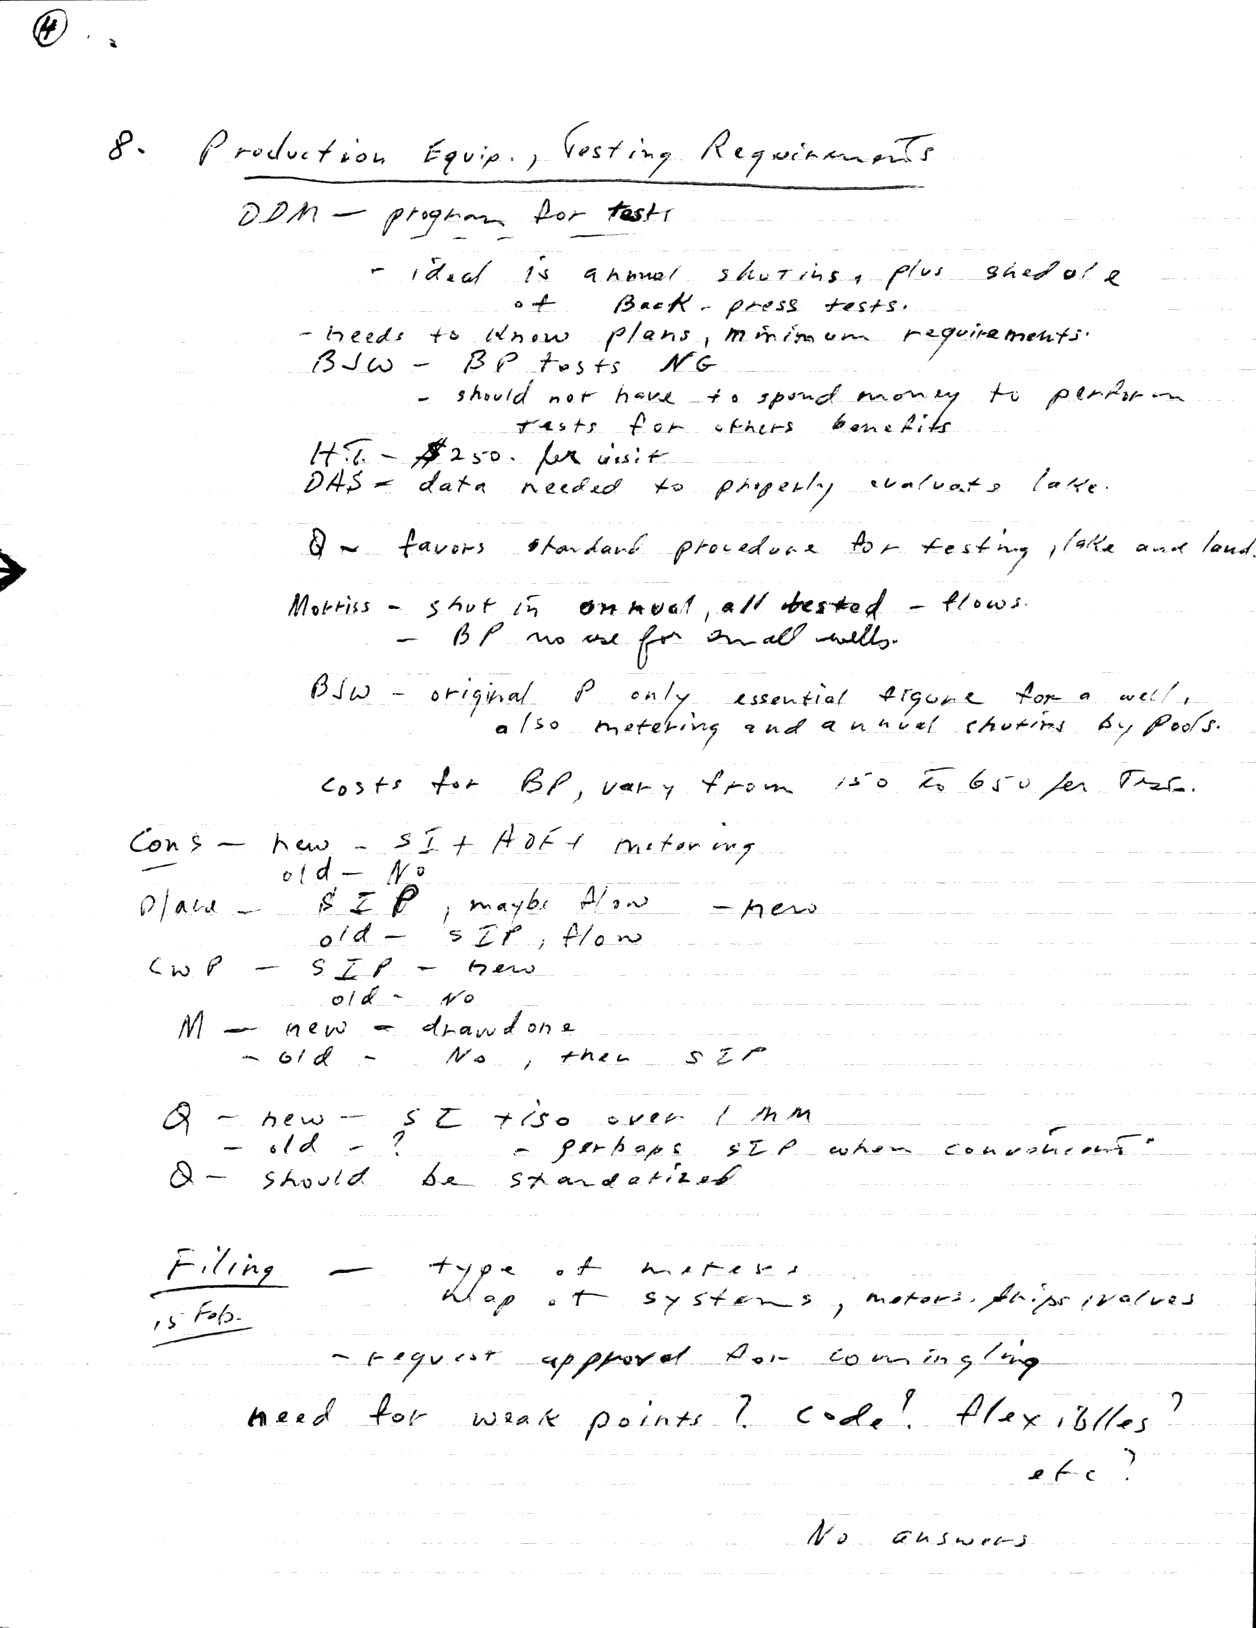 8. Production Equip., Testing Requirements
DDM - program for tests
- ideal is annual shutins, plus shedule
of Back-press tests.
- needs to know plans, minimum requirements.
BJW - BP tests NG
- should not have to spend money to perform
tests for others benefits
H.T. - $250. per visit
DAS - data needed to properly evaluate lake.
Q - favors standard procedure for testing, lake and land.
Morriss - shut in annual, all tested - flows.
- BP no use for small wells.
BJW - original P only essential figure for a well,
also metering and annual shutins by Pools.
costs for BP, vary from 150 to 650 per Test.
Cons - new - SI + AOF + metering
old - No
SIP, maybe flow - new
old - SIP, flow
CWP - SIP - new
old - No
M - new - drawdone
- old - No, then SIP
Q - new - SI + iso over 1 MM
- old - ? - perhaps SIP when convenient
Q - should be standarized
Filing - type of meters
15 Feb. map of systems, meters, drips, valves
- request approval for comingling
need for weak points? code? flexiblles?
etc?
No answers